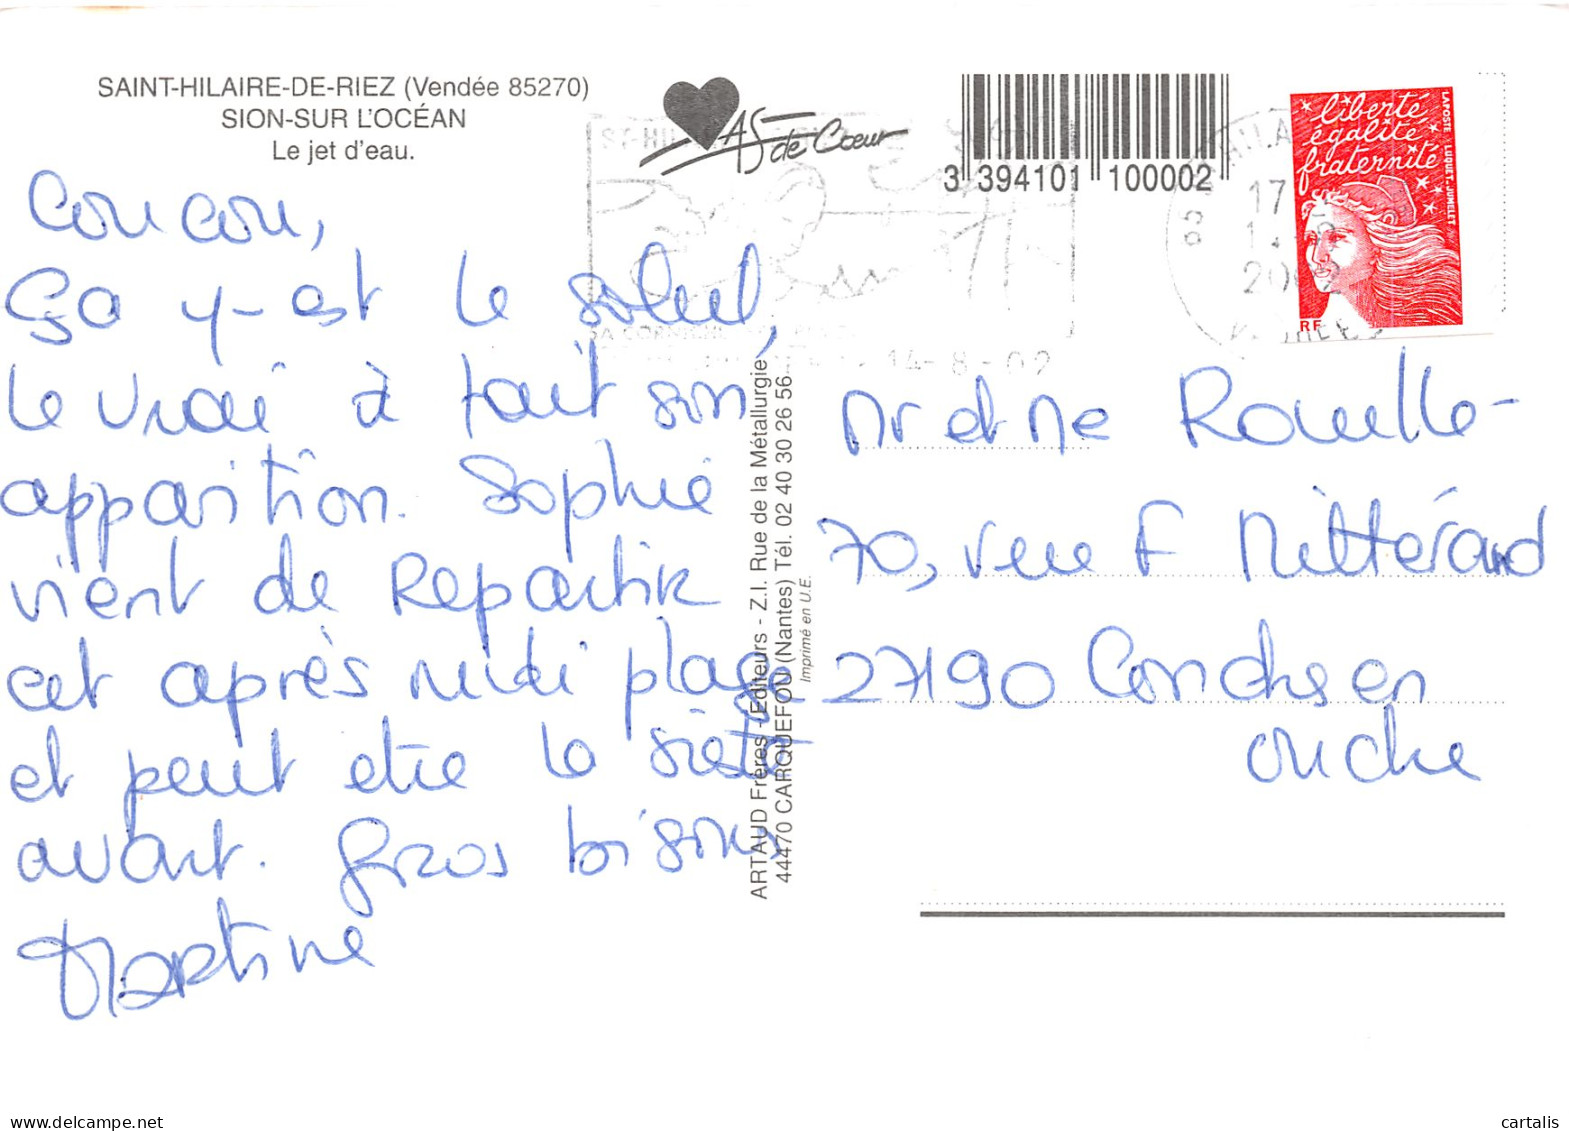 SAINT-HILAIRE-DE-RIEZ (Vendée 85270)
SION-SUR L'OCÉAN
Le jet d'eau.
AS de Coeur
3 394101 100002
liberté
égalité
fraternité
LA POSTE LUQUET-JUMELET
RF
17
2002
14-8-02
Coucou,
Ça y-est le soleil,
le vrai à fait son
apparition. Sophie
vient de Repartir
cet après midi plage
et peut etre la sieste
avant. Gros bisous
Martine
ARTAUD Frères - Editeurs - Z.I. Rue de la Métallurgie
44470 CARQUEFOU (Nantes) Tél. 02 40 30 26 56
Imprimé en U.E.
Mr et Me Rouelle-
70, rue F Mittérand
27190 Conches en
ouche
cartalis